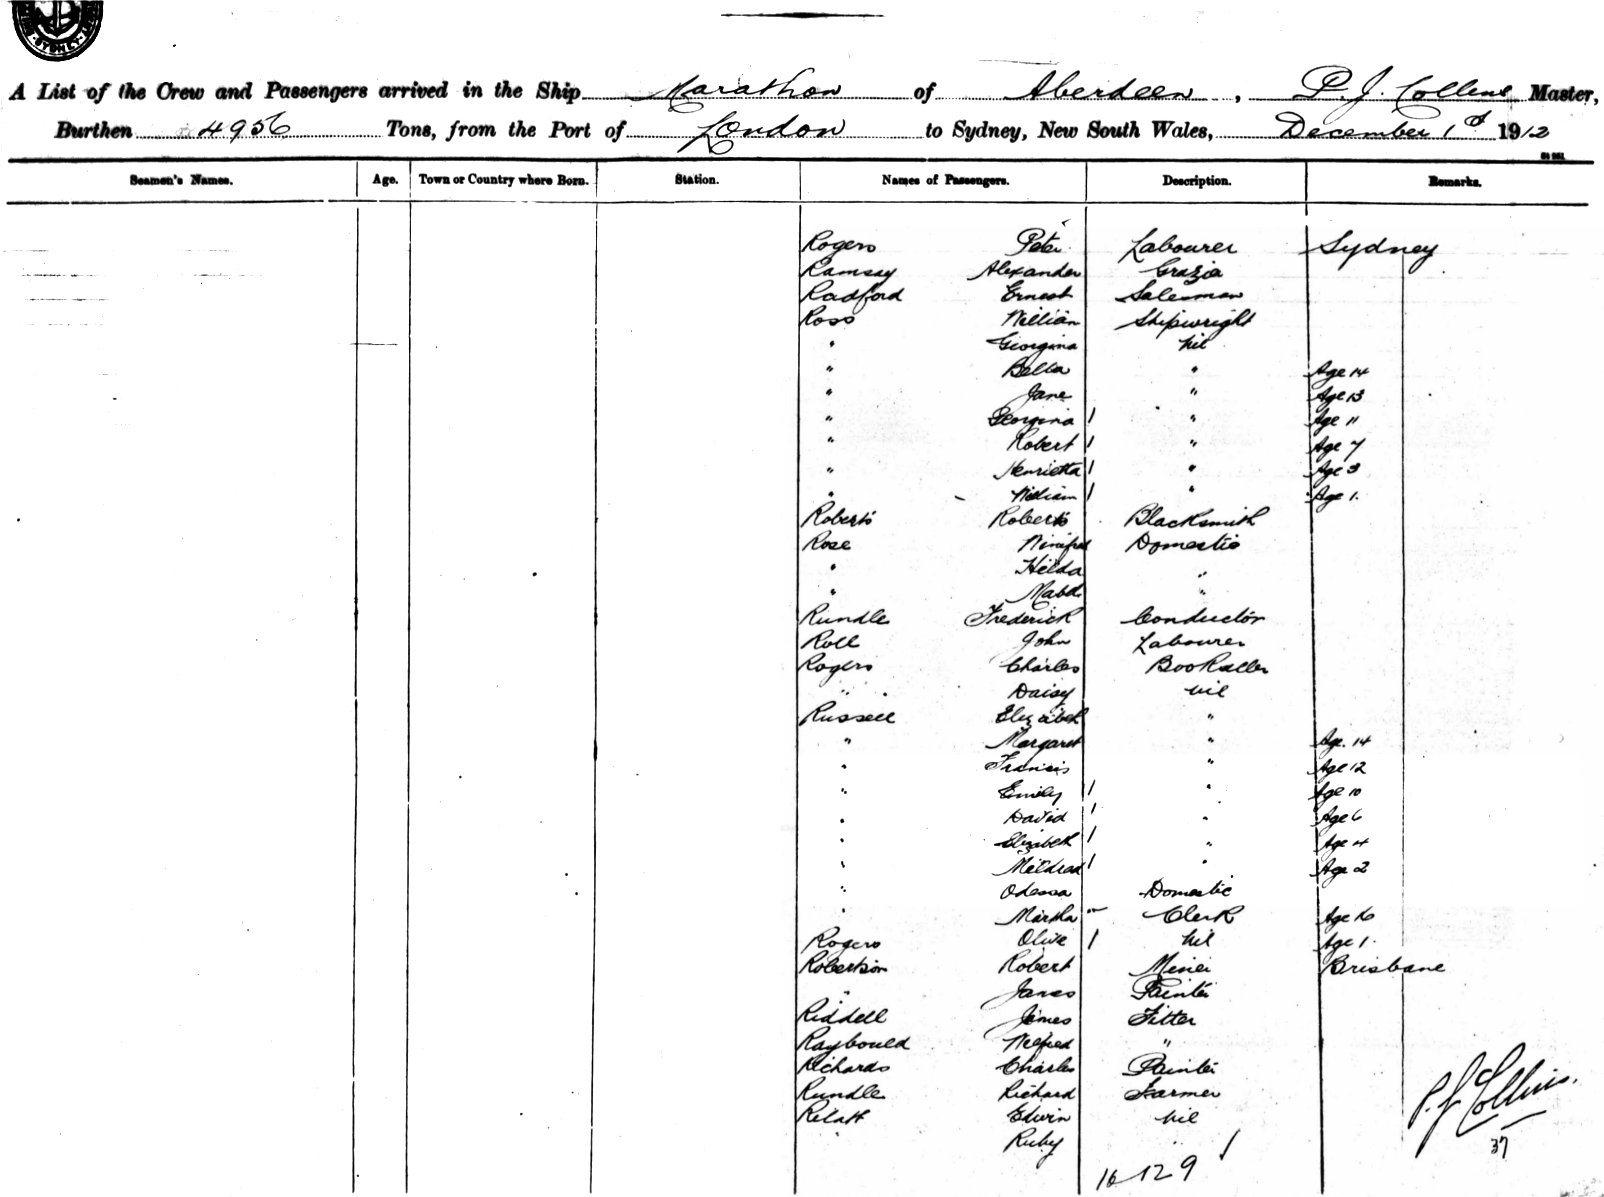 SYDNEY
A List of the Crew and Passengers arrived in the Ship Marathon of Aberdeen, P. J. Collins Master,
Burthen 4956 Tons, from the Port of London to Sydney, New South Wales, December 1st 1912
Seamen's Names. Age. Town or Country where Born. Station. Names of Passengers. Description. Remarks.
Rogers Peter Labourer Sydney
Ramsay Alexander Grazier
Radford Ernest Salesman
Ross William Shipwright
" Georgina Nil
" Bella " Age 14
" Jane " Age 13
" Georgina 1 " Age 11
" Robert 1 " Age 7
" Henrietta 1 " Age 3
" William 1 " Age 1.
Roberts Roberts Blacksmith
Rose Winifred Domestic
" Hilda "
" Mabel "
Rundle Frederick Conductor
Roll John Labourer
Rogers Charles Bookseller
" Daisy Nil
Russell Elizabeth "
" Margaret " Age. 14
" Francis " Age 12
" Emily 1 " Age 10
" David 1 " Age 6
" Elizabeth 1 " Age 4
" Mildred 1 " Age 2
" Odessa Domestic
" Martha Clerk Age 16
Rogers Olive 1 Nil Age 1.
Robertson Robert Miner Brisbane
" James Painter
Riddell James Fitter
Raybould Wilfred "
Richards Charles Painter
Rundle Richard Farmer
Edwin Nil
" Ruby "
16 129 1
P. J. Collins.
37